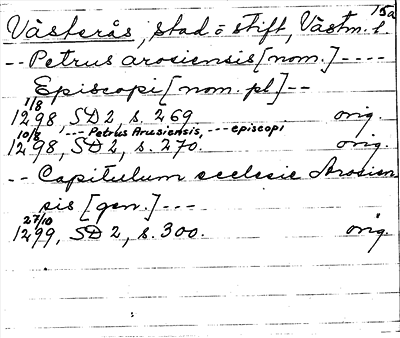 15a
Västerås, stad o stift, Västm. l.
-- Petrus arosiensis [nom.] ----
Episcopi [nom. pl] --
1/8
1298 SD 2, s. 269 orig.
10/8 '--- Petrus Arusiensis, --- episcopi
1298, SD 2, s. 270. orig.
-- Capitulum ecclesie Arosien
sis [gen.] ---
27/10
1299, SD 2, s. 300. orig.